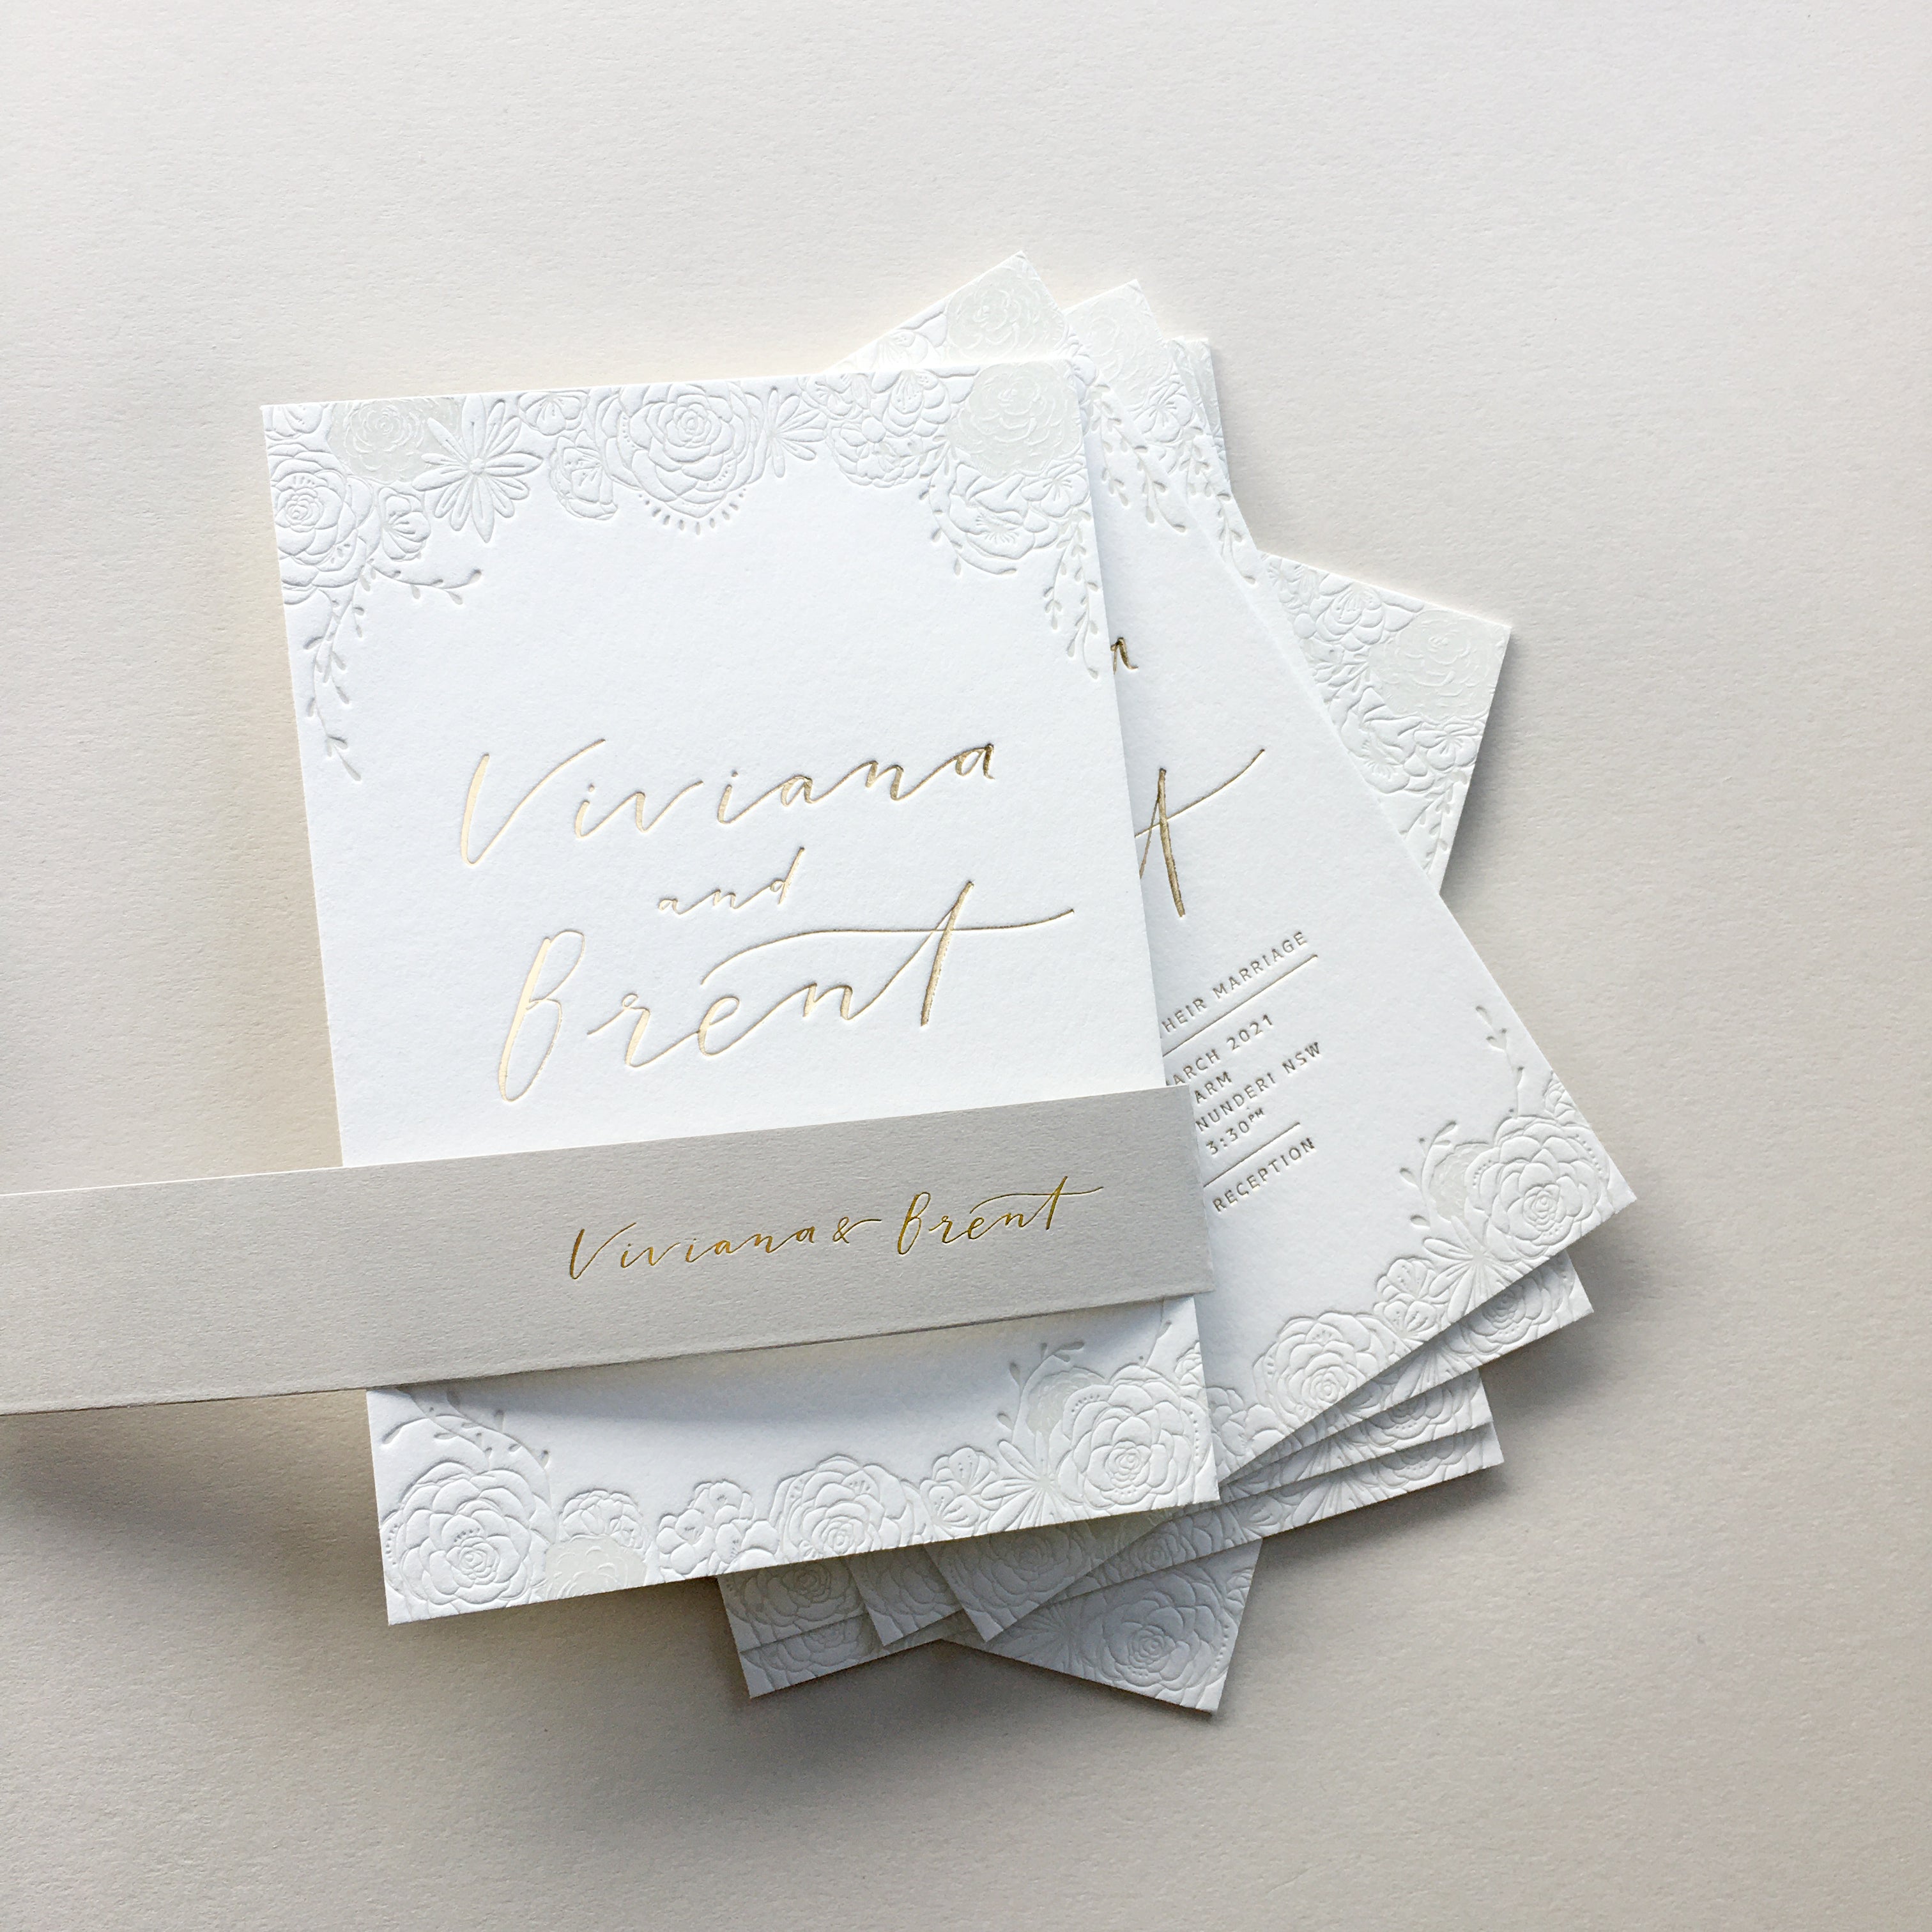 Viviana
and
Brent
Viviana & Brent
HEIR MARRIAGE
ARCH 2021
ARM
NUNDERI NSW
3:30PM
RECEPTION